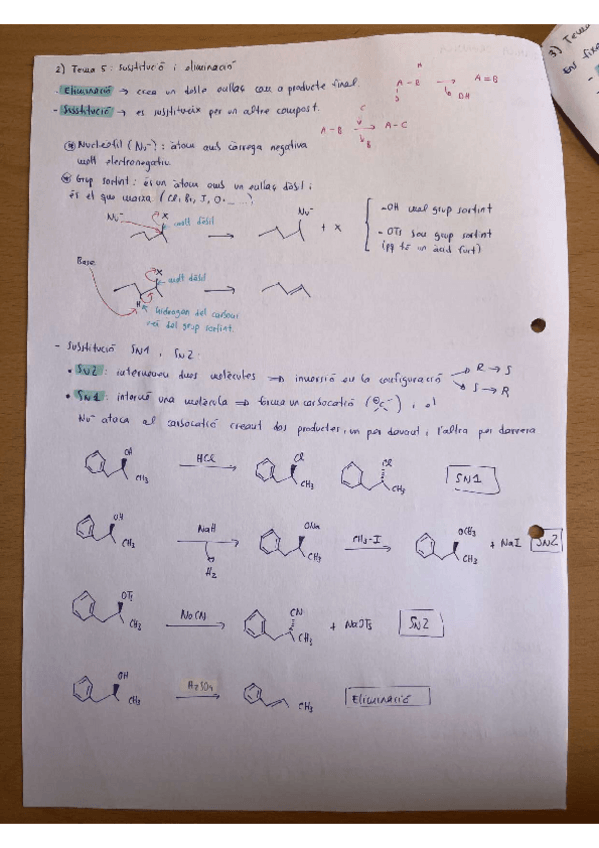 2) Tema 5: Substitució i eliminació
- Eliminació → crea un doble enllaç com a producte final.
A - B → A = B
OH
- Substitució → es substitueix per un altre compost.
A - B → A - C
C
B
Nucleòfil (Nu⁻): àtom amb càrrega negativa
molt electronegatiu.
Grup sortint: és un àtom amb un enllaç dèbil i
és el que marxa (Cl, Br, I, O...)
Nu⁻ X molt dèbil → Nu⁻ + X
-OH mal grup sortint
-OTs bon grup sortint
(pq té un àcid fort)
Base X molt dèbil
H hidrogen del carboni
veí del grup sortint.
- Substitució SN1, SN2:
• SN2: intervenen dues molècules → inversió en la configuració → R → S
→ S → R
• SN1: intervé una molècula ⇒ forma un carbocatió (⊕C-), el
Nu⁻ ataca al carbocatió creant dos productes, un per davant i l'altra per darrera
OH CH₃ HCl → Cl CH₃ Cl CH₃ SN1
OH CH₃ NaH → H₂ ONa CH₃ CH₃-I → OCH₃ CH₃ + NaI SN2
OTs CH₃ NaCN → CN CH₃ + NaOTs SN2
OH CH₃ H₂SO₄ → CH₃ Eliminació
3) Tema
En